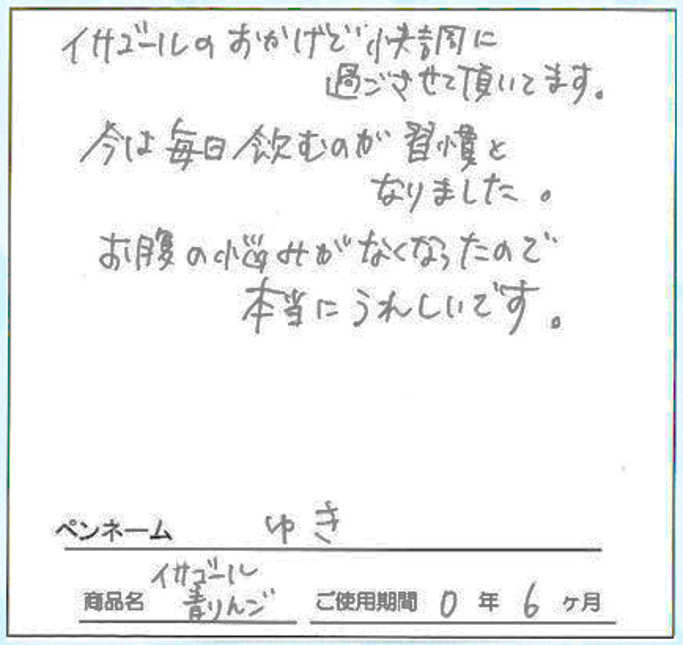 イサゴールのおかげで快調に
過ごさせて頂いてます。
今は毎日飲むのが習慣と
なりました。
お腹の悩みがなくなったので
本当にうれしいです。
ペンネーム ゆき
商品名 イサゴール 青りんご ご使用期間 0 年 6 ヶ月